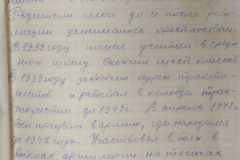 Родители мои до и после рево-
люции занимались крестьянством.
В 1932 году пошел учиться в сред-
нюю школу. Окончил шесть классов
В 1939 году закончил курсы тракто-
ристов и работал в колхозе трак-
тористом до 1942 г. В апреле 1942 г.
был призван в армию, где находился
до 1947 года. Участвовал в боях в
войсках артиллерии на тягачах